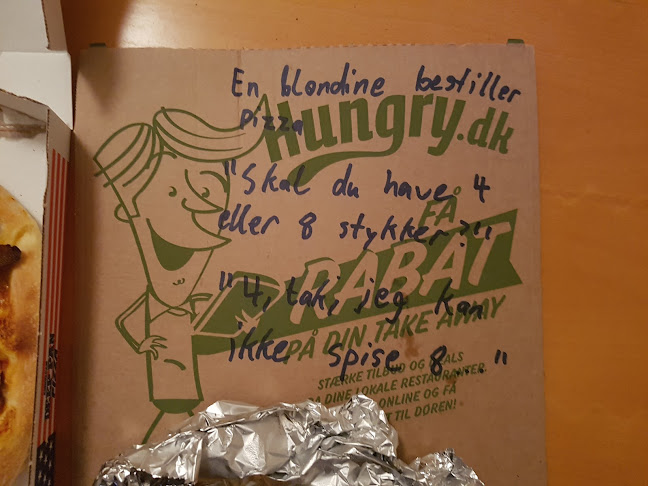 En blondine bestiller
pizza
Hungry.dk
"Skal du have 4
eller 8 stykker?"
FÅ
RABAT
"4, tak, jeg kan
PÅ DIN TAKE AWAY
ikke spise 8...."
STÆRKE TILBUD OG
DINE LOKALE RESTAURANTER.
ONLINE OG FÅ
TIL DØREN!